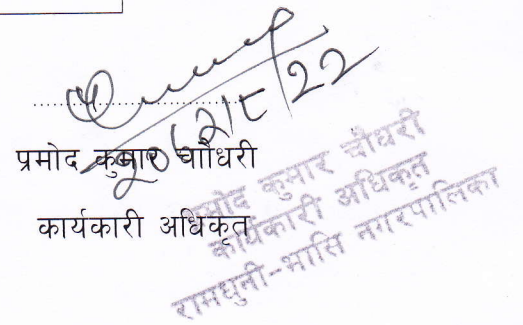 २०७२/८/२२
प्रमोद कुमार चौधरी
कार्यकारी अधिकृत
प्रमोद कुमार चौधरी
कार्यकारी अधिकृत
रामधुनी-भासि नगरपालिका